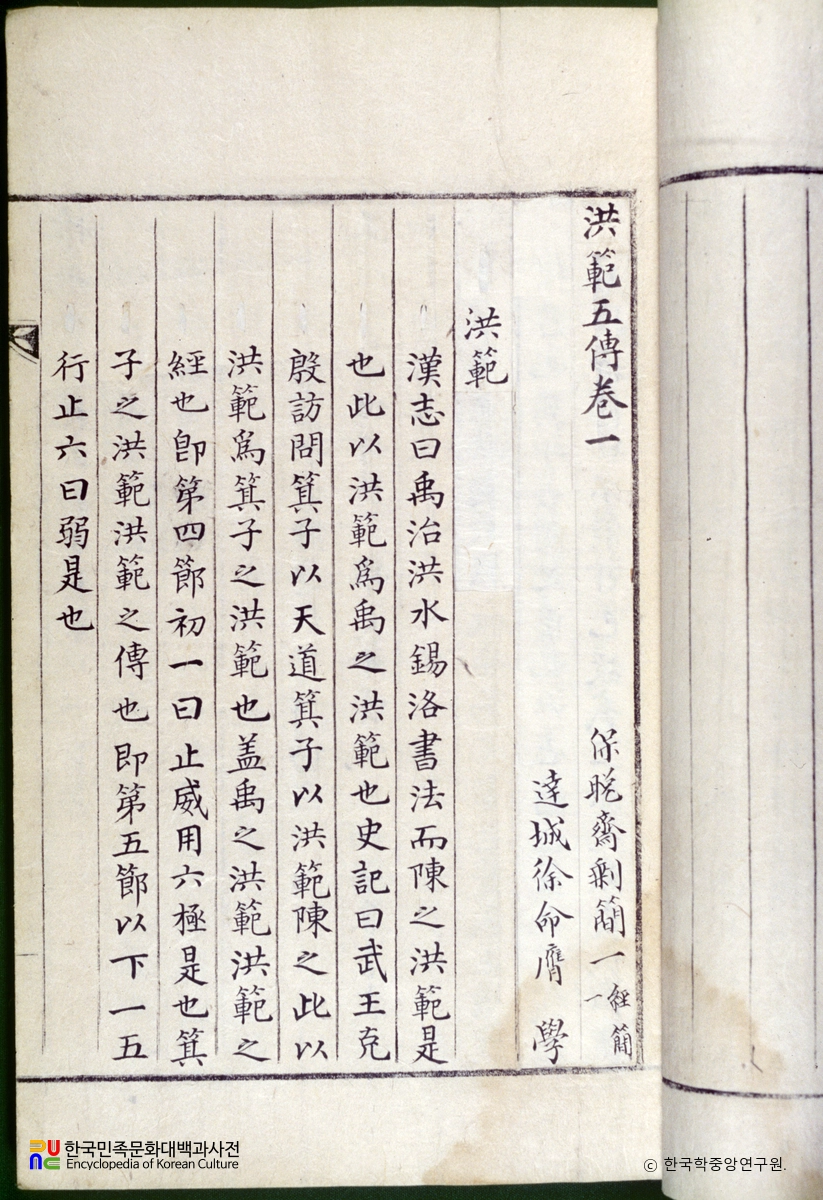 洪範五傳卷一
保晩齋剩簡一 經簡一
達城徐命膺學
洪範
漢志曰禹治洪水錫洛書法而陳之洪範是
也此以洪範爲禹之洪範也史記曰武王克
殷訪問箕子以天道箕子以洪範陳之此以
洪範爲箕子之洪範也盖禹之洪範洪範之
經也卽第四節初一曰止威用六極是也箕
子之洪範洪範之傳也即第五節以下一五
行止六曰弱是也
한국민족문화대백과사전
Encyclopedia of Korean Culture
© 한국학중앙연구원.